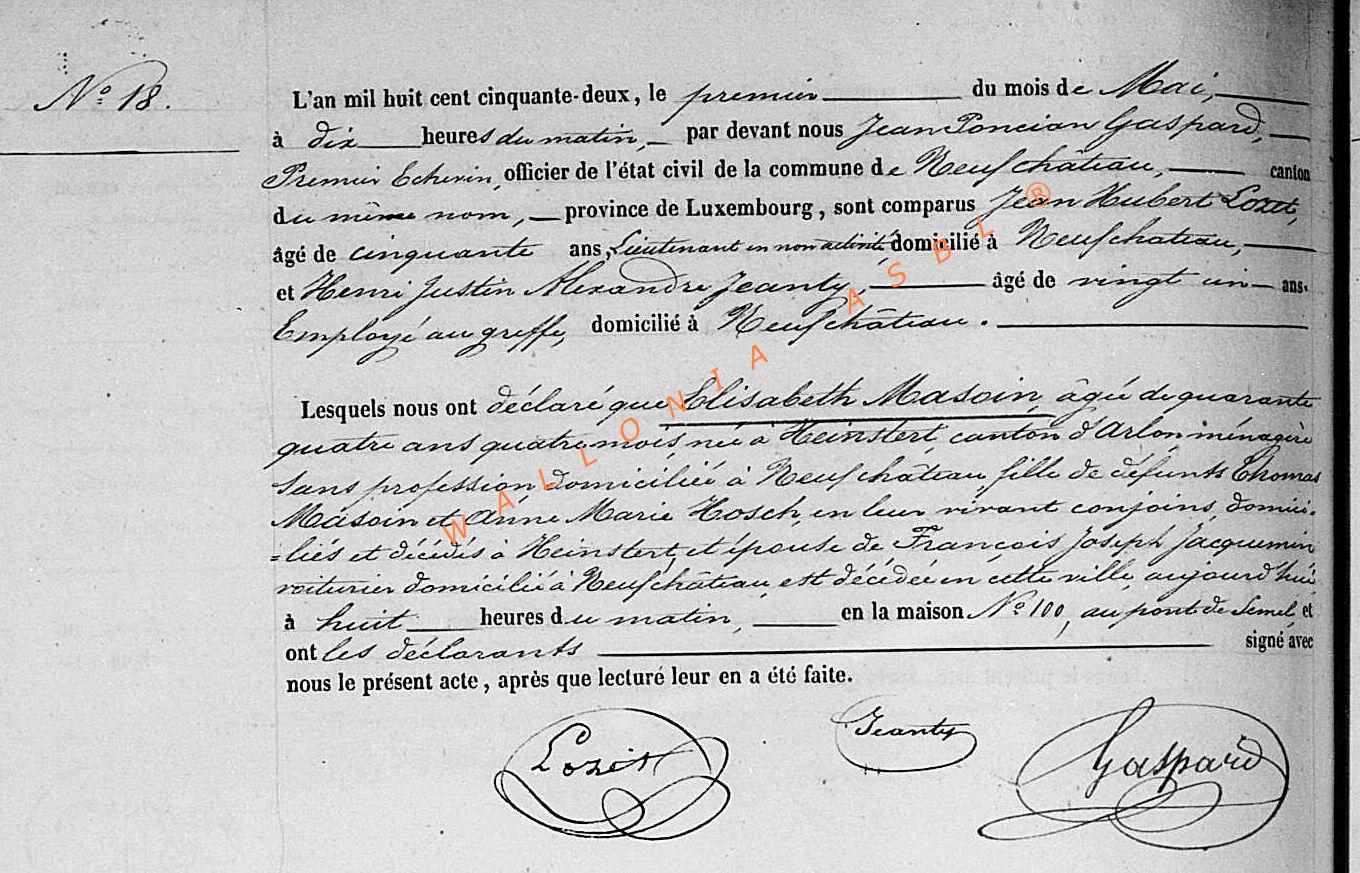 N.° 18.
L'an mil huit cent cinquante-deux, le premier du mois de Mai,
à dix heures du matin, par devant nous Jean Poncian Gaspard,
Premier Echevin, officier de l'état civil de la commune de Neufchâteau, canton
du même nom, province de Luxembourg, sont comparus Jean Hubert Lozet,
âgé de cinquante ans, Lieutenant en non activité, domicilié à Neufchateau,
et Henri Justin Alexandre Jeanty, âgé de vingt un ans.
Employé au greffe, domicilié à Neufchâteau.
Lesquels nous ont déclaré que Elisabeth Masoin, âgée de quarante
quatre ans quatre mois, née à Heinstert, canton d'Arlon ménagère
sans profession domiciliée à Neufchâteau fille de défunts Thomas
Masoin et Anne Marie Hosch, en leur vivant conjoins, domici-
=liés et décédés à Heinstert, et épouse de François Joseph Jacquemin
voiturier domicilié à Neufchâteau, est décédée en cette ville, aujourd'hui
à huit heures du matin, en la maison N.° 100, au pont de Semel, et
ont les déclarants signé avec
nous le présent acte, après que lecture leur en a été faite.
Lozet Jeanty Gaspard
WALLONIA ASBL ®